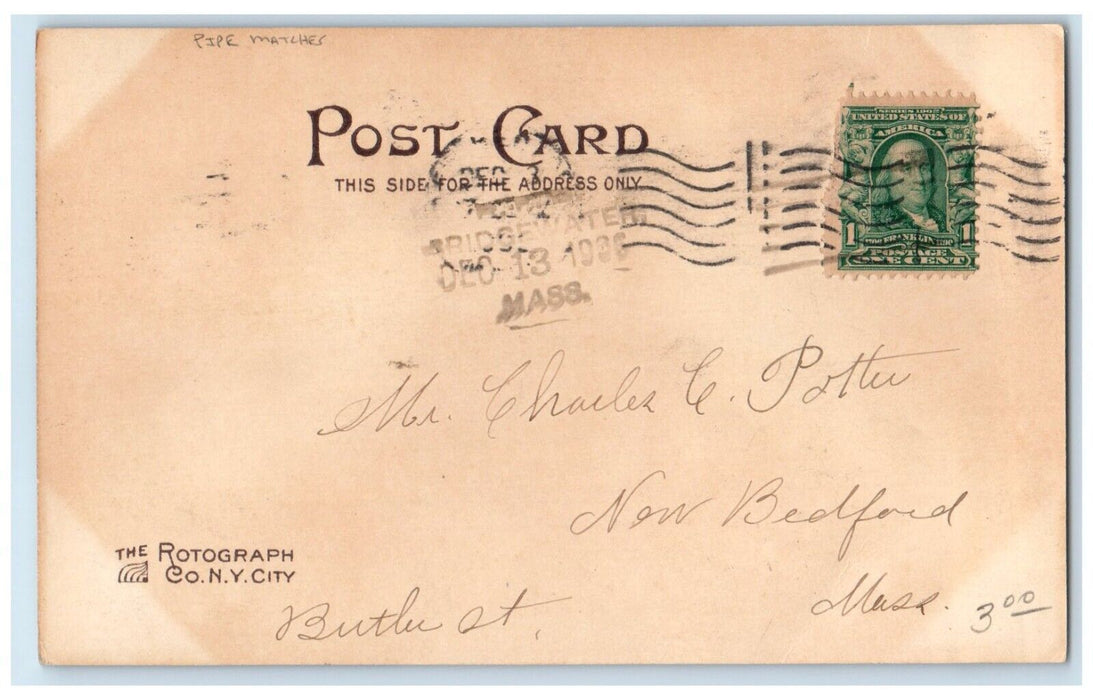 PIPE MATCHES
POST CARD
THIS SIDE FOR THE ADDRESS ONLY.
DEC
BRIDGEWATER,
DEC 13 1906
MASS.
SERIES 1902
UNITED STATES OF
AMERICA
1 FRANKLIN 1
POSTAGE
ONE CENT
Mr. Charles C. Potter
New Bedford
Mass.
THE ROTOGRAPH
CO. N. Y. CITY
Butler St.
3 00